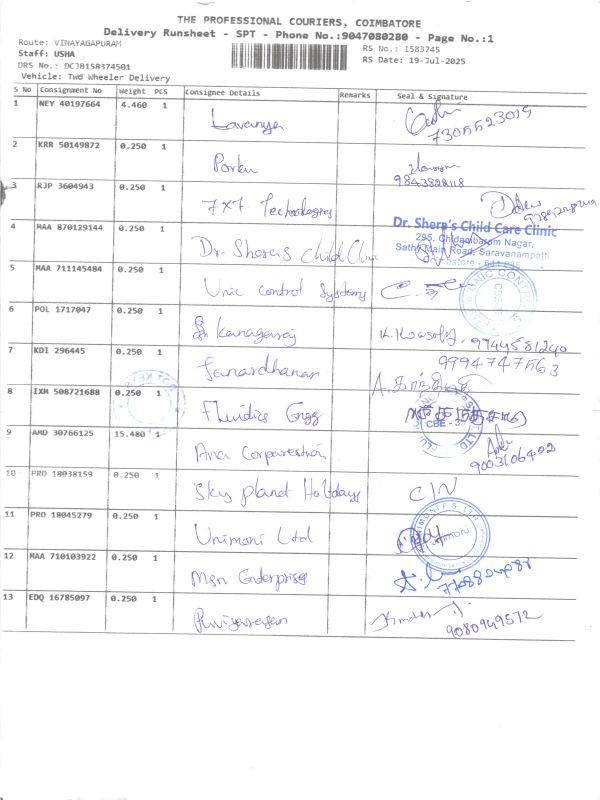 THE PROFESSIONAL COURIERS, COIMBATORE
Delivery Runsheet - SPT - Phone No.:9047080280 - Page No.:1
Route: VINAYAGAPURAM
RS No.: 1583745
Staff: USHA
RS Date: 19-Jul-2025
DRS No.: DCJB158374501
Vehicle: Two Wheeler Delivery
S No Consignment No Weight PCS Consignee Details Remarks Seal & Signature
1 NEY 40197664 4.460 1 Lavanya
7305523019
2 KRR 50149872 0.250 1
9843828118
3 RJP 3604943 0.250 1 7x7 Technologies
4 MAA 870129144 0.250 1 Dr. Shera's Child Clinic
Dr. Shera's Child Care Clinic
295, Chidambaram Nagar,
Sathy Main Road, Saravanampatti
Coimbatore - 641 035
5 MAA 711145484 0.250 1 Unic Control Systems
6 POL 1717047 0.250 1 Kanagaraj
9744581240
7 KDI 296445 0.250 1 Janardhanan
9994747563
8 IXM 508721688 0.250 1 Fluidics Engg
CBE - 35
9 AMD 30766125 15.480 1
9003106402
10 PRO 18038159 0.250 1 Sky planet Holidays
11 PRO 18045279 0.250 1 Unimoni Ltd
UNIMONI
12 MAA 710103922 0.250 1 Msn Enterprises
13 EDQ 16785097 0.250 1
9080949572